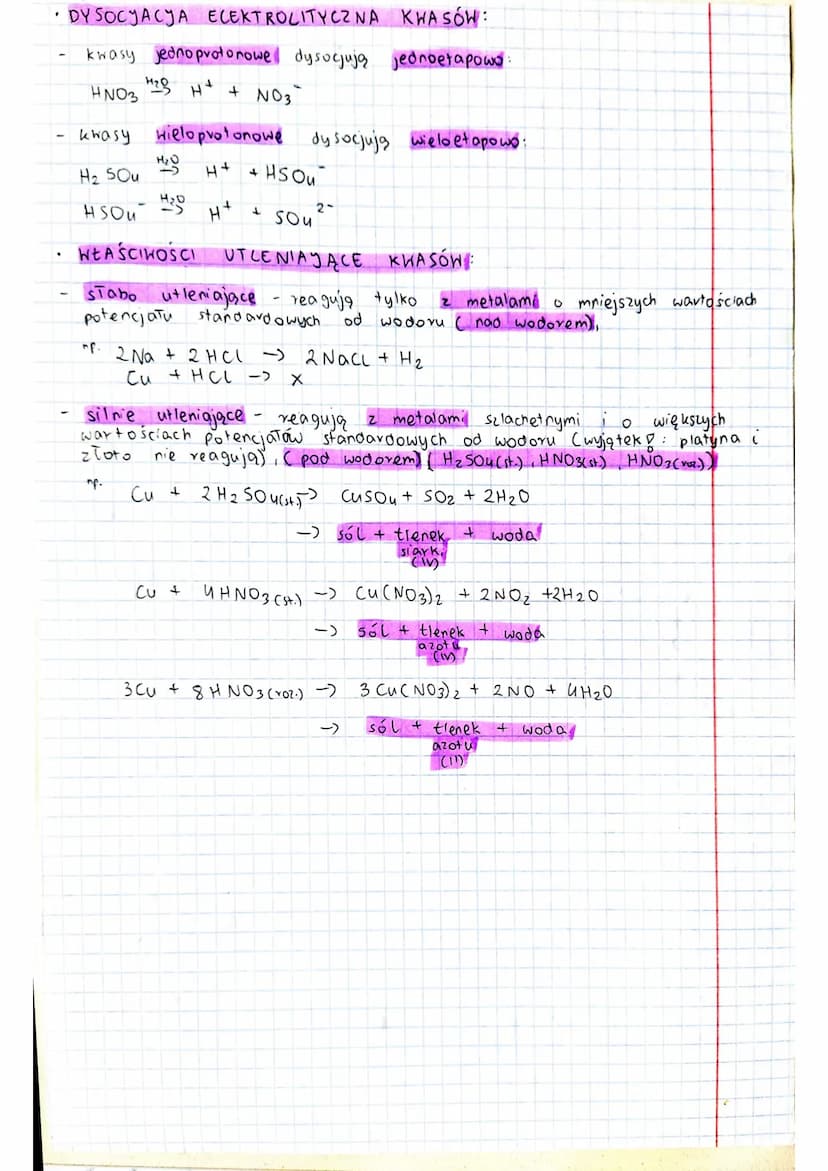 · DYSOCJACJA ELEKTROLITYCZNA KWASÓW:
- kwasy jednoprotonowe dysocjują jednoetapowo:
HNO₃ H₂O→ H⁺ + NO₃⁻
- kwasy wieloprotonowe dysocjują wieloetapowo:
H₂SO₄ H₂O→ H⁺ + HSO₄⁻
HSO₄⁻ H₂O→ H⁺ + SO₄²⁻
· WŁAŚCIWOŚCI UTLENIAJĄCE KWASÓW:
- słabo utleniające - reagują tylko z metalami o mniejszych wartościach
potencjału standardowych od wodoru (nad wodorem),
np. 2Na + 2HCl -> 2NaCl + H₂
Cu + HCl -> x
- silnie utleniające - reagują z metalami szlachetnymi i o większych
wartościach potencjałów standardowych od wodoru (wyjątek!: platyna i
złoto nie reagują), (pod wodorem) (H₂SO₄(st.), HNO₃(st.), HNO₃(roz.))
np. Cu + 2H₂SO₄(st.) -> CuSO₄ + SO₂ + 2H₂O
-> sól + tlenek + woda
siarki
(IV)
Cu + 4HNO₃(st.) -> Cu(NO₃)₂ + 2NO₂ + 2H₂O
-> sól + tlenek + woda
azotu
(IV)
3Cu + 8HNO₃(roz.) -> 3Cu(NO₃)₂ + 2NO + 4H₂O
-> sól + tlenek + woda
azotu
(II)